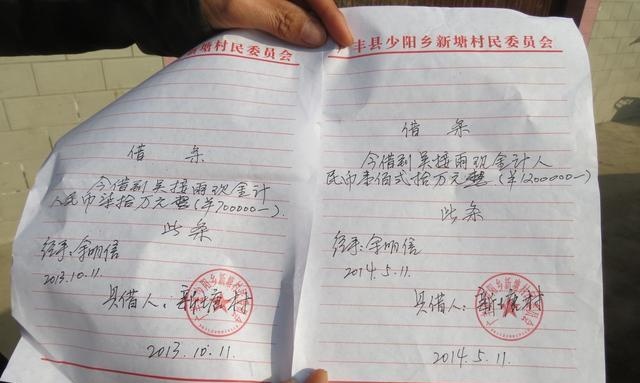 新塘村民委员会
借 条
今借到吴接雨现金计
人民币柒拾万元整(¥700000—).
此条
经手:余明信
2013.10.11.
具借人:新塘村
2013.10.11.
丰县少阳乡新塘村民委员会
借 条
今借到吴接雨现金计人
民币壹佰弍拾万元整(¥1200000—)
此条
经手:余明信
2014.5.11.
具借人:新塘村
2014.5.11.